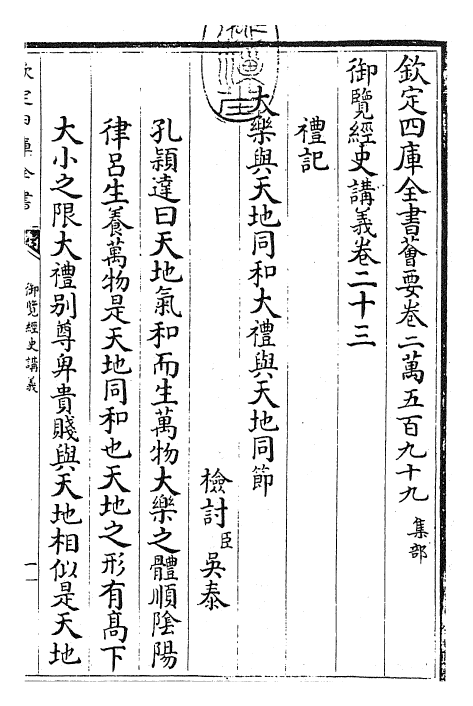 欽定四庫全書薈要卷二萬五百九十九 集部
御覽經史講義卷二十三
禮記
大樂與天地同和大禮與天地同節
檢討臣吳泰
孔穎達曰天地氣和而生萬物大樂之體順陰陽
律呂生養萬物是天地同和也天地之形有高下
大小之限大禮别尊卑貴賤與天地相似是天地
欽定四庫全書
御覽經史講義
一